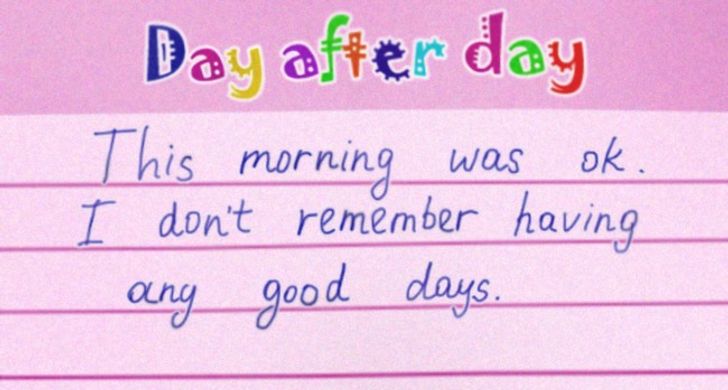 Day after day
This morning was ok.
I don't remember having
any good days.